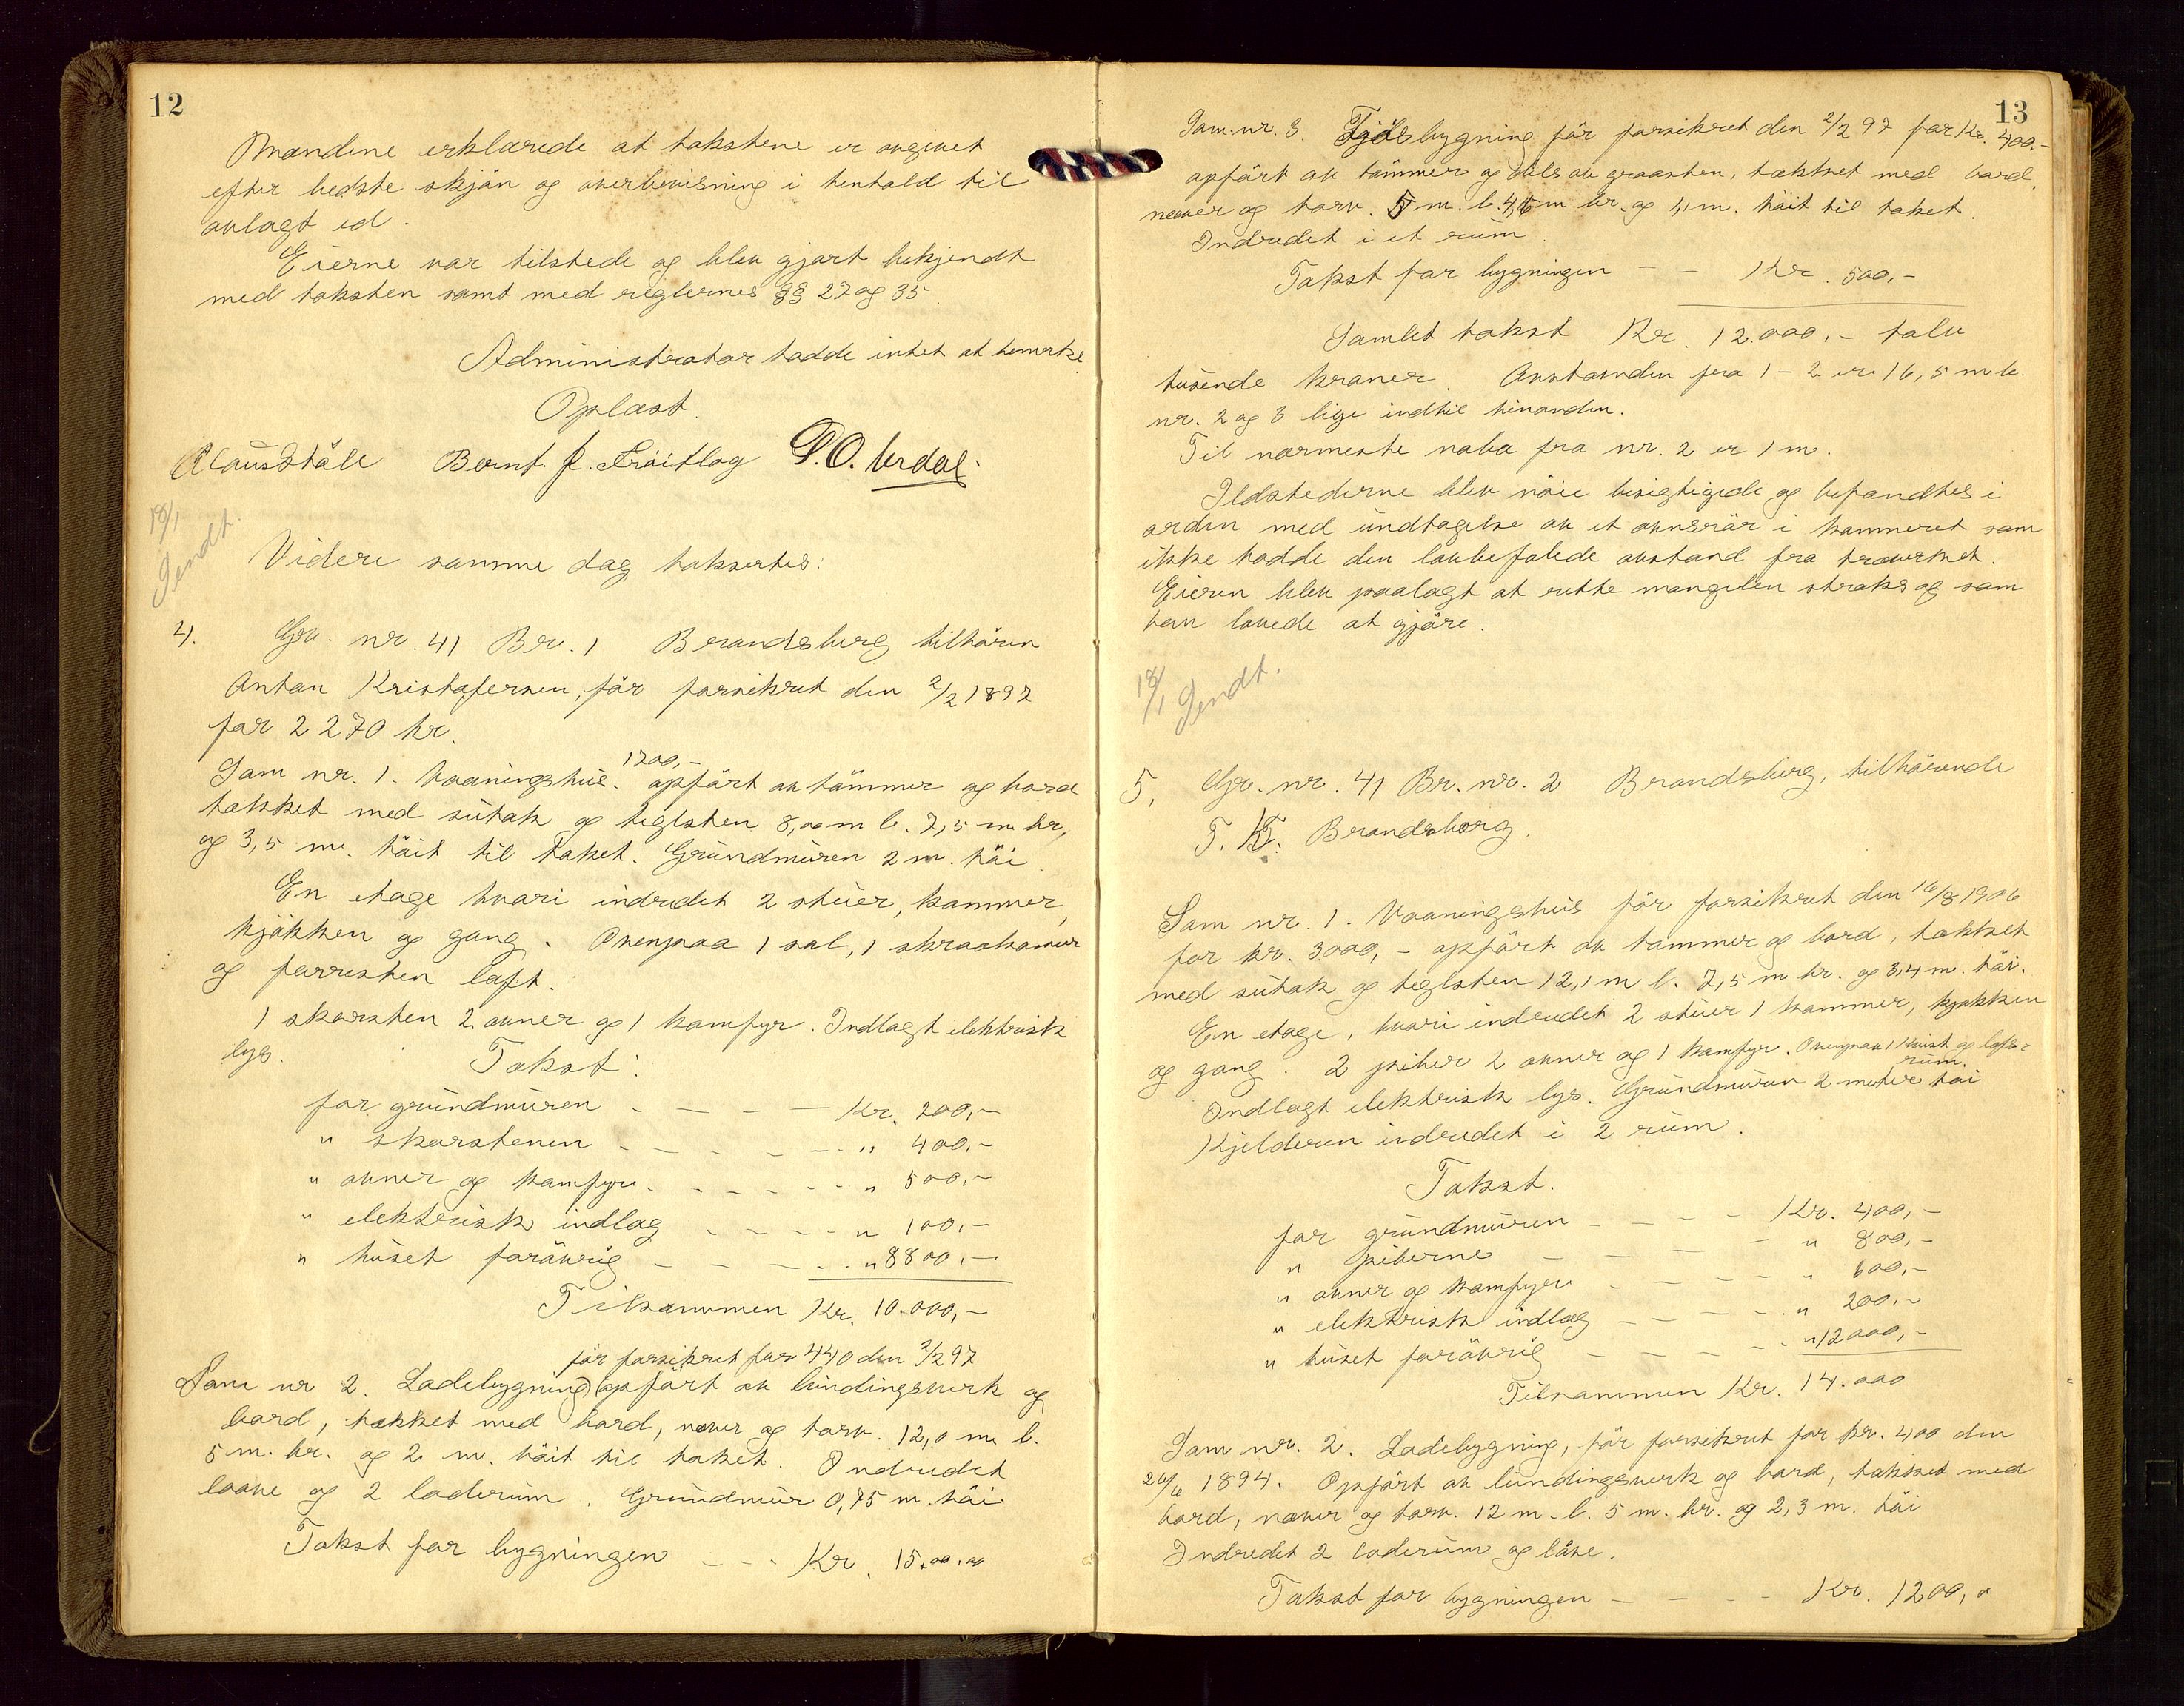 12
Mændene erklærede at takstene er avgivet
efter bedste skjön og overbevisning i henhold til
avlagt ed.
Eierne var tilstede og blev gjort bekjendt
med taksten samt med reglernes §§ 27 og 35
Administrator hadde intet at bemerke
Oplæst.
Claus Ståle Bernt. J. P.O. Urdal.
18/1
Sendt.
Videre samme dag taksertes:
4. Gr. nr. 41 Br. 1 Brandsberg tilhören
Anton Kristofersen, för forsikret den 2/2 1897
for 2270 kr.
1700,-
Som nr. 1. Vaaningshus. opfört av tömmer og bord
tækket med sutak og teglsten 8,00 m l. 7,5 m br,
og 3,5 m. höit til taket. Grundmuren 2 m. höi.
En etage hvori indredet 2 stuer, kammer,
kjökken og gang. Ovenpaa 1 sal, 1 skraakammer
og forresten loft.
1 skorsten 2 ovner og 1 komfyr. Indlagt elektrisk
lys.
Takst:
for grundmuren - - - - Kr. 200,-
" skorstenen - - - - - " 400,-
" ovner og komfyr. - - - - - " 500,-
" elektrisk indlag - - - - " 100,-
" huset forövrig - - - - - " 8800,-
Tilsammen Kr. 10.000,-
för forsikret for 440 den 2/2 97
Som nr 2. Ladebygning) opfört av bindingsverk og
bord, tækket med bord, næver og torv. 12,0 m l.
5 m. br. og 2 m. höit til taket. Indredet
loove og 2 laderum. Grundmur 0,75 m. höi.
Takst for bygningen - - - Kr. 1500.00
13
Som nr. 3. Fjösbygning för forsikret den 2/2 97 for Kr. 400.-
opfört av tömmer og dels av graasten, tækket med bord,
næver og torv. 5 m. l. m br. og m. höit til taket.
Indredet i et rum.
Takst for bygningen - - Kr. 500,-
Samlet takst Kr. 12.000.- tolv
tusende kroner. Avstanden fra 1 - 2 er 16,5 m l.
nr. 2 og 3 lige indtil hinanden.
Til nærmeste nabo fra nr. 2 er 1 m.
Ildstederne blev nöie besigtigede og befandtes i
orden med undtagelse av et ovnsrör i kammeret som
ikke hadde den lovbefalede avstand fra træverket.
Eieren blev paalagt at rette mangelen straks og som
han lovede at gjöre.
18/1
Sendt.
5. Gr. nr. 41 Br. nr. 2 Brandsberg, tilhörende
T. K. Brandsberg.
Som nr. 1. Vaaningshus för forsikret den 16/8 1906
for kr. 3000,- opfört av tömmer og bord, tækket
med sutak og teglsten 12,1 m l. 7,5 m br. og 3,4 m. höi.
En etage, hvori indredet 2 stuer 1 kammer, kjökken
og gang. 2 piber 2 ovner og 1 komfyr. Ovenpaa 1 kvist og lofts-
rum.
Indlagt elektrisk lys. Grundmuren 2 meter höi
Kjelderen indredet i 2 rum.
Takst.
for grundmuren - - - - Kr. 400,-
" piberne - - - - - " 800,-
" ovner og komfyr - - - - " 600,-
" elektrisk indlag - - - - " 200,-
" huset forövrig - - - - - " 12000,-
Tilsammen Kr. 14.000
Som nr. 2. Ladebygning, för forsikret for kr. 400 den
26/6 1894. Opfört av bindingsverk og bord, tækket med
bord, næver og torv. 12 m. l. 5 m. br. og 2,3 m. höi
Indredet 2 laderum og låve.
Takst for bygningen - - - - Kr. 1200,0